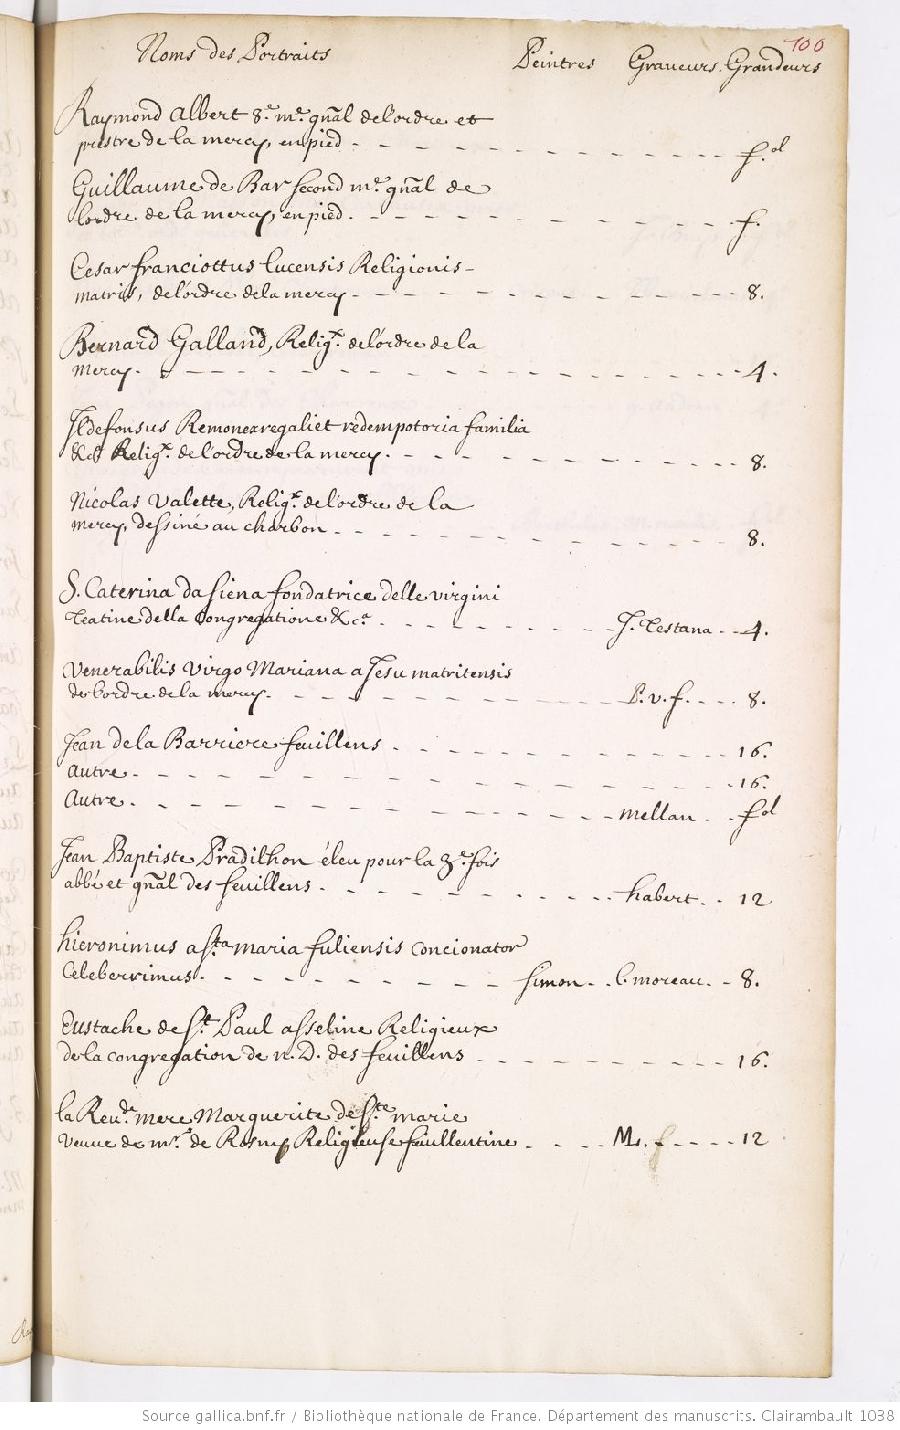 100
Noms des Portraits Peintres Graveurs Grandeurs
Raymond Albert 8.e m.e gnãl de l'ordre et
prestre de la mercy, en pied - - - - f.ol
Guillaume de Bar second m.e gnãl de
l'ordre de la mercy, en pied. - - - - f.
Cesar franciottus lucensis Religionis -
matris, de l'ordre de la mercy - - - - 8.
Bernard Galland, Relig.x de l'ordre de la
mercy. - - - - 4.
Ildefonsus Remonex regali et redemptoria familia
&c.a Relig.x de l'ordre de la mercy. - - - - 8.
Nicolas Valette, Relig.x de l'ordre de la
mercy, dessiné au charbon - - - - 8.
S. Caterina da Siena fondatrice delle virgini
Teatine della Congregatione &c.a - - - - J. Testana - - 4.
Venerabilis Virgo Mariana a Jesu matritensis
de l'ordre de la mercy. - - - - P. v. f. - - - 8.
Jean de la Barriere feuillens - - - - 16.
Autre - - - - 16.
Autre - - - - mellan - - fol
Jean Baptiste Pradilhon éleu pour la 3.e fois
abbé et gnãl des feuillens - - - - habert - - 12
hieronimus a S.ta maria fuliensis concionator
Celeberrimus - - - - simon - - l. moreau - - 8.
Eustache de S.t Paul asseline Religieux
de la congregation de n. D. des feuillens - - - - 16.
la Reu.de mere Marguerite de S.te marie
veuue de m.r de Rosny Religieuse feuillentine - - - - M. f - - - - 12
Source gallica.bnf.fr / Bibliothèque nationale de France. Département des manuscrits. Clairambault 1038